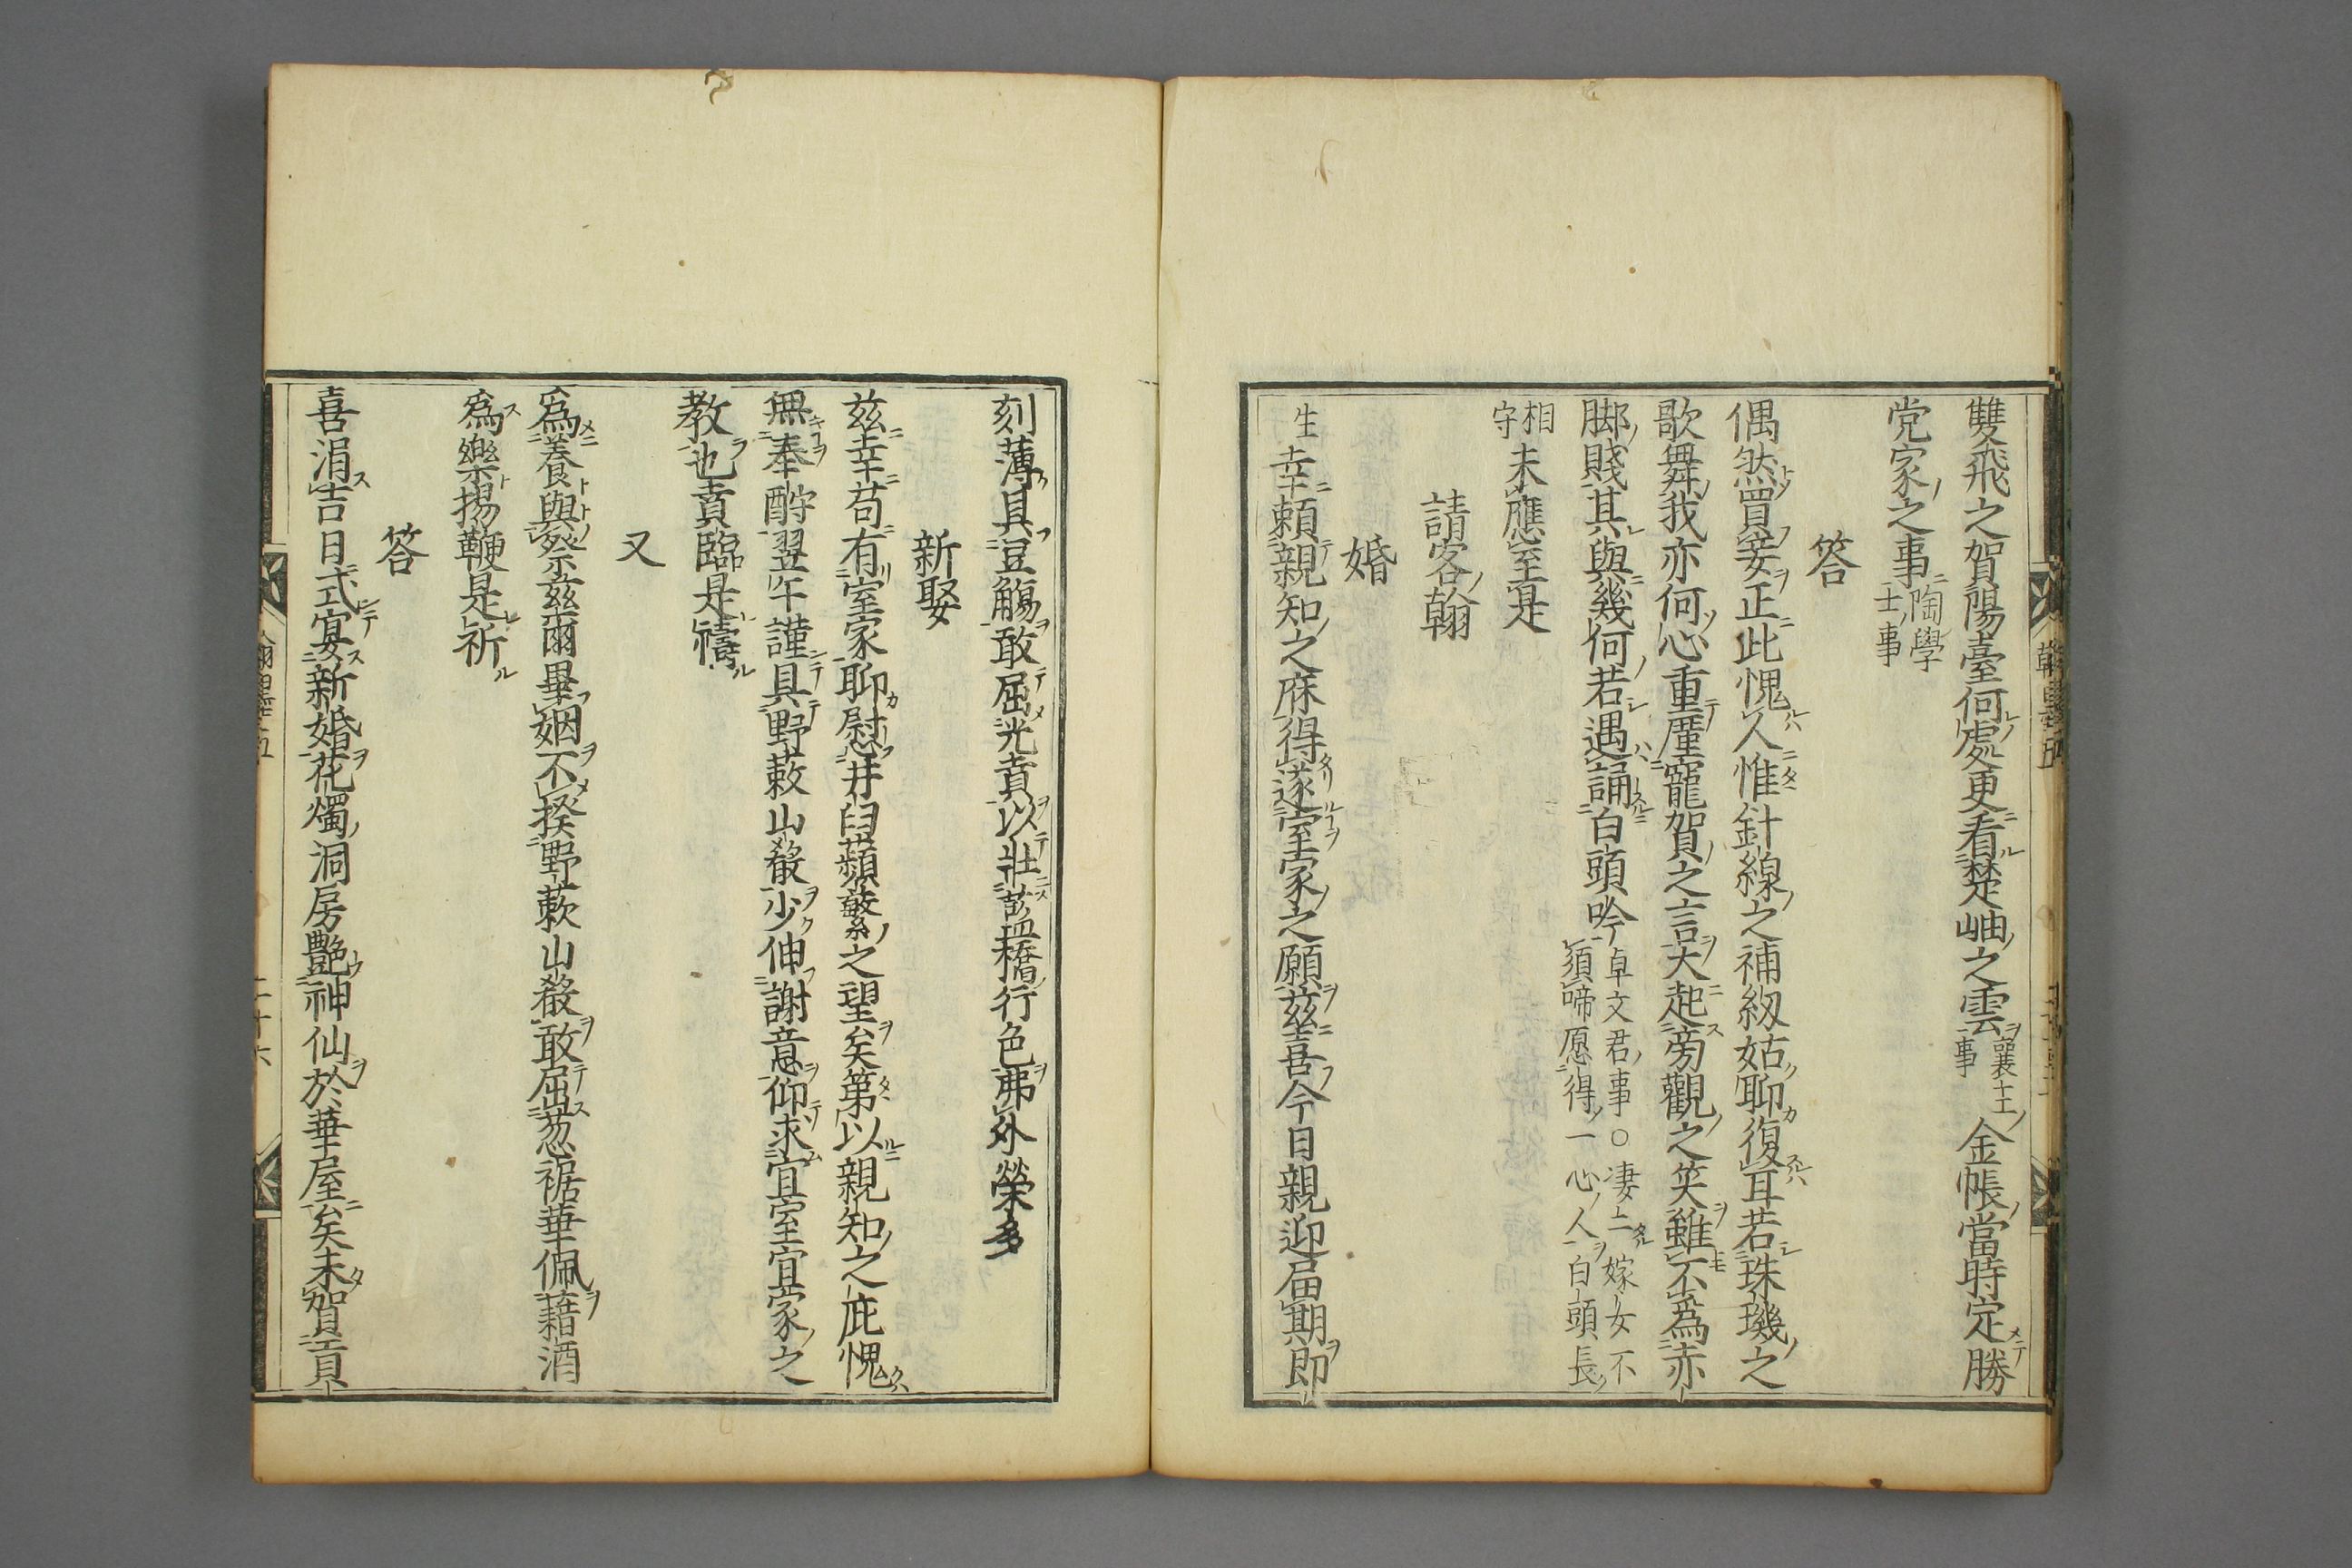 雙飛之賀陽臺何處更看楚岫之雲襄王事金帳當時定勝
党家之事陶學士事
答
偶然買妾正此愧人惟針線之補紉姑聊復耳若珠璣之
歌舞我亦何心重厪寵賀之言大起旁觀之笑雖不為赤
脚賤其與幾何若遇誦白頭吟卓文君事○凄凄嫁女不須啼愿得一心人白頭長
相守未應至是
請客翰
婚
生幸頼親知之庥得遂室家之願茲喜今日親迎届期即
刻薄具豆觴敢屈光賁以壯藍橋行色弗外榮多
新娶
茲幸苟有室家聊慰井臼蘋蘩之望矣第以親知之庇愧
無奉酧翌午謹具野蔌山殽少伸謝意仰求宜室宜家之
教也賁臨是禱
又
為養與祭茲爾畢姻不揆野蔌山殽敢屈葱裾華佩藉酒
為樂揚鞭是祈
答
喜涓吉日式宴新婚花燭洞房艷神仙於華屋矣未賀言貢